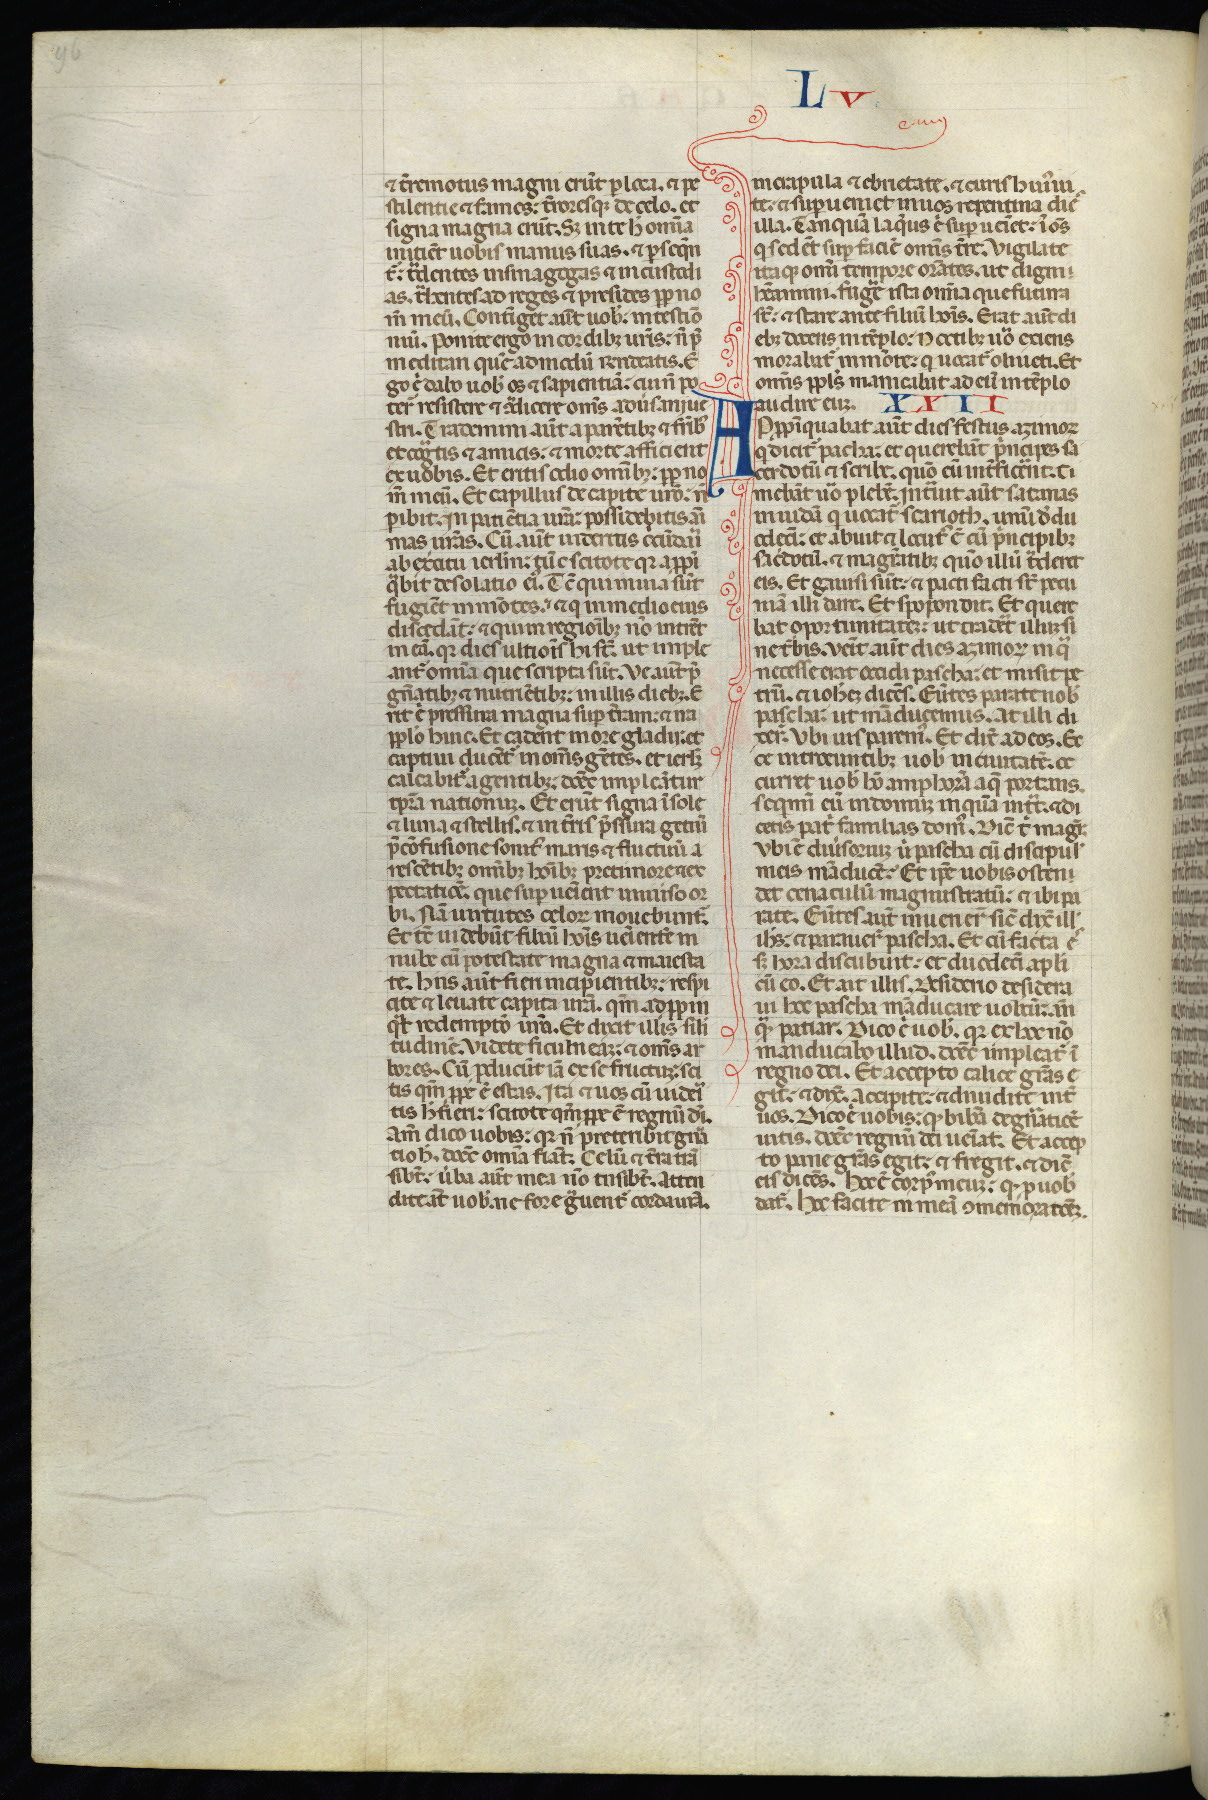 96
L V
⁊ t̄remotus magni erūt ꝑ loca. ⁊ pe
stilentie ⁊ fames: t̄roresq; de celo. et
signa magna erūt. Sꝫ ante h̄ omīa
iniciēt uobis manus suas. ⁊ ꝑseqn̄
t̄: tͣdentes in sinagogas ⁊ in custodi
as. tͣhentes ad reges ⁊ presides ꝓp no
m̄ meū. Continget aūt uob̄. in testiō
niū. Ponite ergo in cordibꝫ ur̄is: n̄ p̄
meditari quē admodū rn̄deatis. E
go .n. dabo uob̄ os ⁊ sapientiā: cui n̄ po
ter̄ resistere ⁊ ꝯͣdicere om̄s aduersarii ue
stri. Trademini aūt a parētibꝫ ⁊ fr̄ibꝫ
et cogͣtis ⁊ amicis: ⁊ morte afficient
ex uobis. Et eritis odio om̄ibꝫ: ꝓp no
m̄ meū. Et capillus de capite ur̄o: n̄
ꝑibit. In patiētia ur̄a: possidebitis ani
mas ur̄as. Cū aūt uideritis circūdari
ab exercitu ierl̄m: tūc scitote qꝛ appi
q̄bit desolatio ei᷒. Tūc qui in iudea sūt
fugiēt in mōtes: ⁊ q in medio eius
discedāt: ⁊ qui in regionibꝫ nō intrēt
in eā. qꝛ dies ultionis hi sūt. ut imple
ant᷑ omīa que scripta sūt. Ve aūt p̄
gnātibꝫ ⁊ nutriētibꝫ: in illis diebꝫ. E
rit .n. pressura magna sup t̄ram: ⁊ ira
ppl̄o huic. Et cadent in ore gladii: et
captiui ducēt᷑ in om̄s gētes. et ierl̄m
calcabit᷑ a gentibꝫ: donec impleāntur
tp̄ra nationum. Et erūt signa ī sole
⁊ luna ⁊ stellis. ⁊ in t̄ris p̄ssura gētiū
p̄ cōfusione sonit᷒ maris ⁊ fluctuū a
rescētibꝫ om̄ibꝫ hōibꝫ pre timore ⁊ ex
pectatiōe. que sup ueient uniuerso or
bi. Nā uirtutes celoꝝ mouebunt᷑.
Et tc̄ uidebūt filiū hōis ueientē in
nube cū potestate magna ⁊ maiesta
te. His aūt fieri incipientibꝫ: respi
cite ⁊ leuate capita ur̄a. qm̄ appropin
q̄t redemptō ur̄a. Et dixit illis sili
tudinē. Videte ficulneam: ⁊ om̄s ar
bores. Cū ꝓducūt iā ex se fructum: sci
tis qm̄ ꝓpe ē estas. Ita ⁊ uos cū uideri
tis h̄ fieri: scitote qm̄ ꝓpe ē regnū dei.
Am̄ dico uobis: qꝛ n̄ preteribit gn̄a
tio h̄. donec omīa fiāt. Celū ⁊ t̄ra trā
sibūt: ūba aūt mea nō trāsibūt. Atten
dite aūt uob̄. ne forte gͣuent᷑ corda ur̄a.
in crapula ⁊ ebrietate. ⁊ curis hui᷒ ui
te: ⁊ sup ueniet in uos repentina dies
illa. Tanquā laqueus .n. sup ueiet: ī om̄s
q sedēt sup faciē om̄is t̄re. Vigilate
itaqꝫ omī tempore orātes. ut digni
hēamini. fugere ista omīa que futura
sūt: ⁊ stare ante filiū hōis. Erat aūt di
ebꝫ docens in tēplo: noctibꝫ uͦ exiens
morabat᷑ in mōte: q uocat᷑ oliueti. Et
om̄is ppl̄s manicabat ad eū in tēplo
audire eum. XXII
APpinquabat aūt dies festus azimoꝝ
q dicit᷑ pascha: et querebāt p̄ncipes sa
cerdotū ⁊ scribe. quō eū int̄ficerēt: ti
mebāt uͦ plebē. Intrauit aūt satanas
in iudā q uocat᷑ scarioth. unū de du
odecī: et abiit ⁊ locut᷒ ē cū p̄ncipibꝫ
sacerdotū. ⁊ magistratibꝫ quō illū tͣderet
eis. Et gauisi sūt: ⁊ pacti facti sūt pecu
niā illi dare. Et spopondit. Et quere
bat oportunitatem: ut traderet illum si
ne turbis. Venit aūt dies azimoꝝ in q̄
necesse erat occidi pascha: et misit pe
trū. ⁊ iohem dicēs. Eūtes parate nob̄
pascha: ut māducemus. At illi di
xer̄. Vbi uis parem᷒. Et dixit ad eos. Ec
ce introeuntibꝫ uob̄ in ciuitatē. oc
curret uob̄ hō amphorā aq̄ portans.
seqmini eū in domum in quā intrat: ⁊ di
cetis pat᷑ familias dom᷒. Dicit t̄ mag̅r̅.
Vbi ē diuersorium ubi pascha cū discipul̄
meis māducē. Et ip̄e uobis osten
det cenaculū magnū stratū: ⁊ ibi pa
rate. Eūtes aūt inuener̄ sic̄ dixit ill̄
ih̄s: ⁊ parauer̄ pascha. Et cū facta ēs
sꝫ hora discubuit: et duodecī apl̄i
cū eo. Et ait illis. Desiderio desidera
ui hoc pascha māducare uobcū: an̄
q̄ꝫ patiar. Dico .n. uob̄. qꝛ ex hoc nō
manducabo illud. donec impleat᷑ ī
regno dei. Et accepto calice grās e
git: ⁊ dixit. Accipite: ⁊ diuidite int̄
uos. Dico .n. uobis: qꝫ n̄ bibā de gn̄atiōe
uitis. donec regnū dei ueniat. Et accep
to pane grās egit: ⁊ fregit. ⁊ dedit
eis dicēs. Hoc ē corp᷒ meum: qꝫ ꝓ uob̄
dat᷑. Hoc facite in meā ꝯmemoratōꝫ.